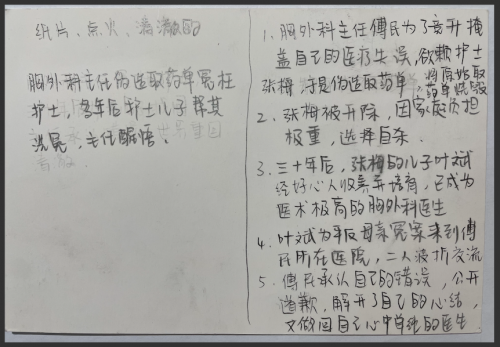 纸片、点火、湿漉漉的
胸外科主任伪造取药单冤枉
护士，多年后护士儿子帮其
洗冤，主任醒悟.
1. 胸外科主任傅民为了高升掩
盖自己的医疗失误，欲赖护士
张梅，于是伪造取药单，将原始取
药单烧毁
2. 张梅被开除，因家庭负担
极重，选择自杀.
3. 三十年后，张梅的儿子叶斌
经好心人收养并培育，已成为
医术极高的胸外科医生
4. 叶斌为平反母亲冤案来到傅
民所在医院，二人波折交流
5. 傅民承认自己的错误，公开
道歉，解开了自己的心结，
又做回自己心中单纯的医生